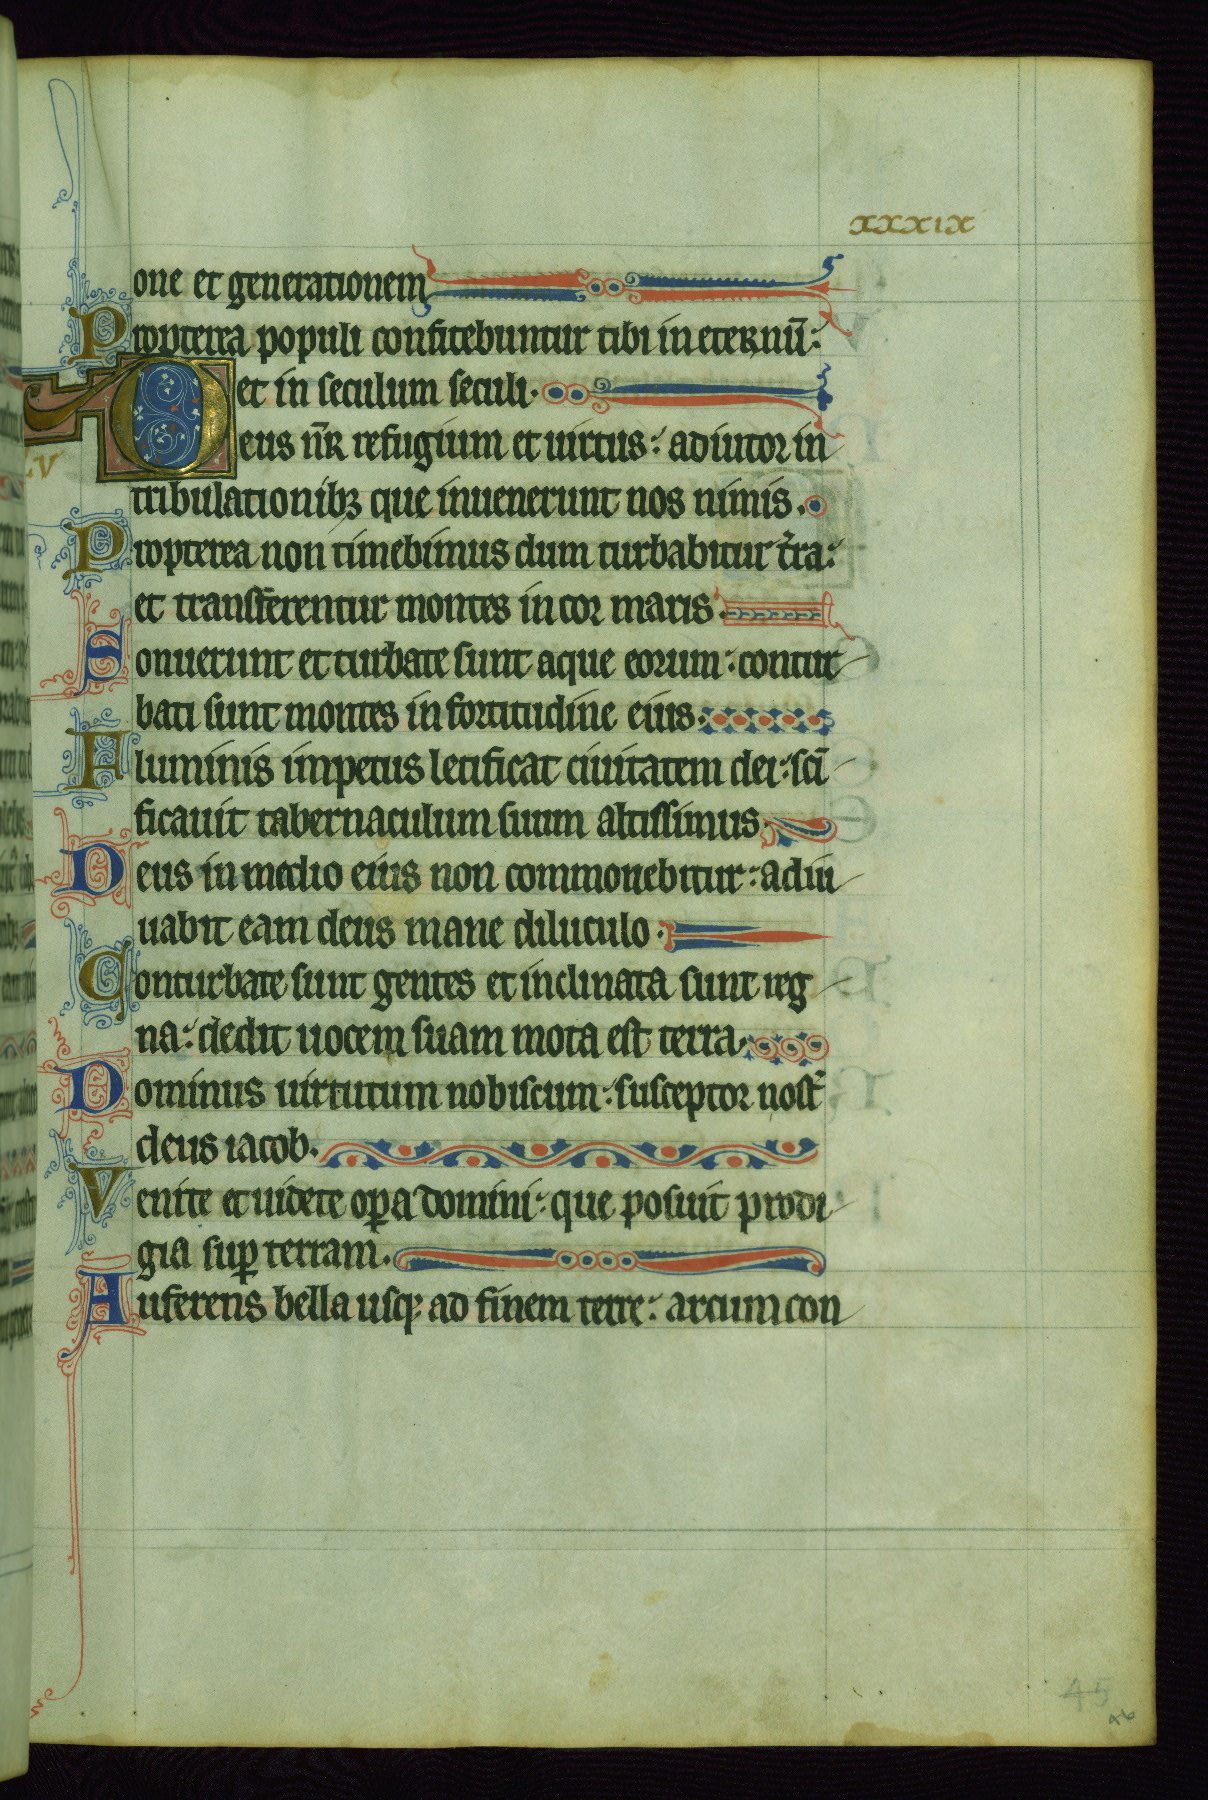 xxxix
one et generationem
Propterea populi confitebuntur tibi in eternū:
et in seculum seculi.
Deus nr̄ refugium et uirtus: adiutor in
.v
tribulationibꝫ que inuenerunt nos nimis.
Propterea non timebimus dum turbabitur t̄ra:
et transferentur montes in cor maris.
Sonuerunt et turbate sunt aque eorum: contur
bati sunt montes in fortitudine eius.
Fluminis impetus letificat ciuitatem dei: sc̄i
ficauit tabernaculum suum altissimus.
Deus in medio eius non commouebitur: adiu
uabit eam deus mane diluculo.
Conturbate sunt gentes et inclinata sunt reg
na: dedit uocem suam mota est terra.
Dominus uirtutum nobiscum: susceptor nost᷑
deus iacob.
Venite et uidete oꝑa domini: que posuit prodi
gia suꝑ terram.
Auferens bella usqꝫ ad finem terre: arcum con
45